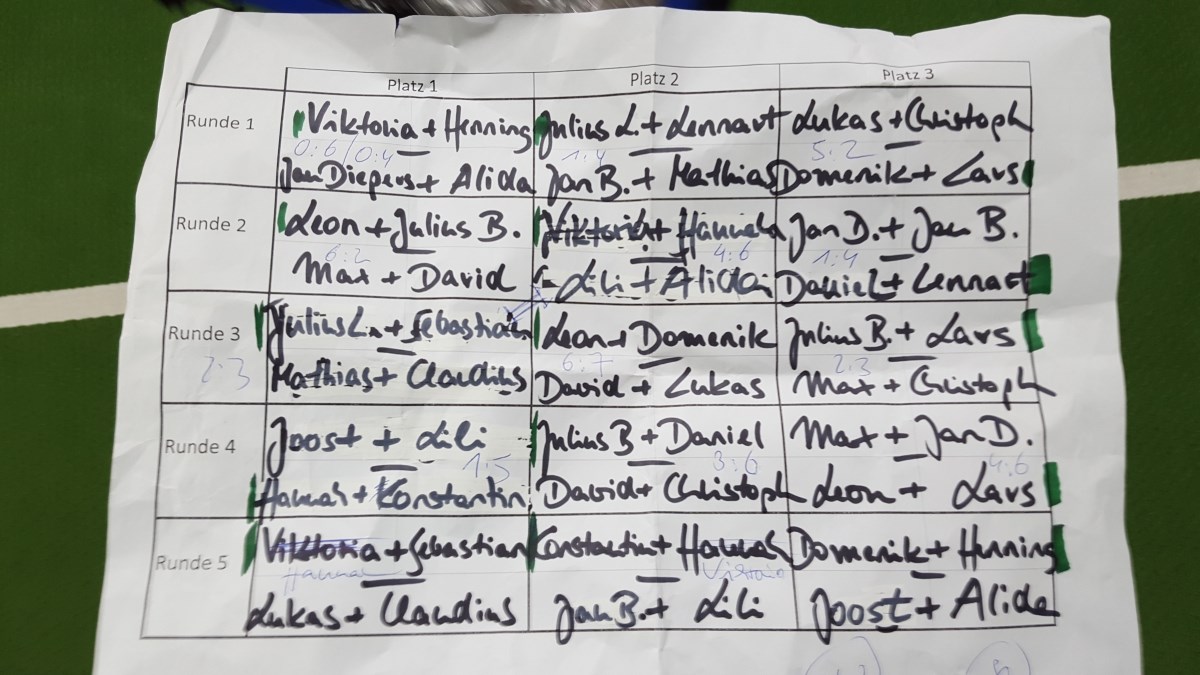 Platz 1 Platz 2 Platz 3
Runde 1
Viktoria + Henning Julius L. + Lennart Lukas + Christoph
0:6/0:4 1:4 5:2
Jan Diepers + Alida Jan B. + Mathias Domenik + Lars
Runde 2
Leon + Julius B. Viktoria + Hannah Jan D. + Jan B.
6:2 4:6 1:4
Max + David Lili + Alida Daniel + Lennart
Runde 3
Julius L. + Sebastian Leon + Domenik Julius B. + Lars
2:3 6:7 2:3
Mathias + Claudius David + Lukas Max + Christoph
Runde 4
Joost + Lili Julius B + Daniel Max + Jan D.
1:5 3:6 4:6
Hannah + Konstantin David + Christoph Leon + Lars
Runde 5
Viktoria + Sebastian Konstantin + Hannah Domenik + Henning
Hannah Viktoria
Lukas + Claudius Jan B. + Lili Joost + Alida